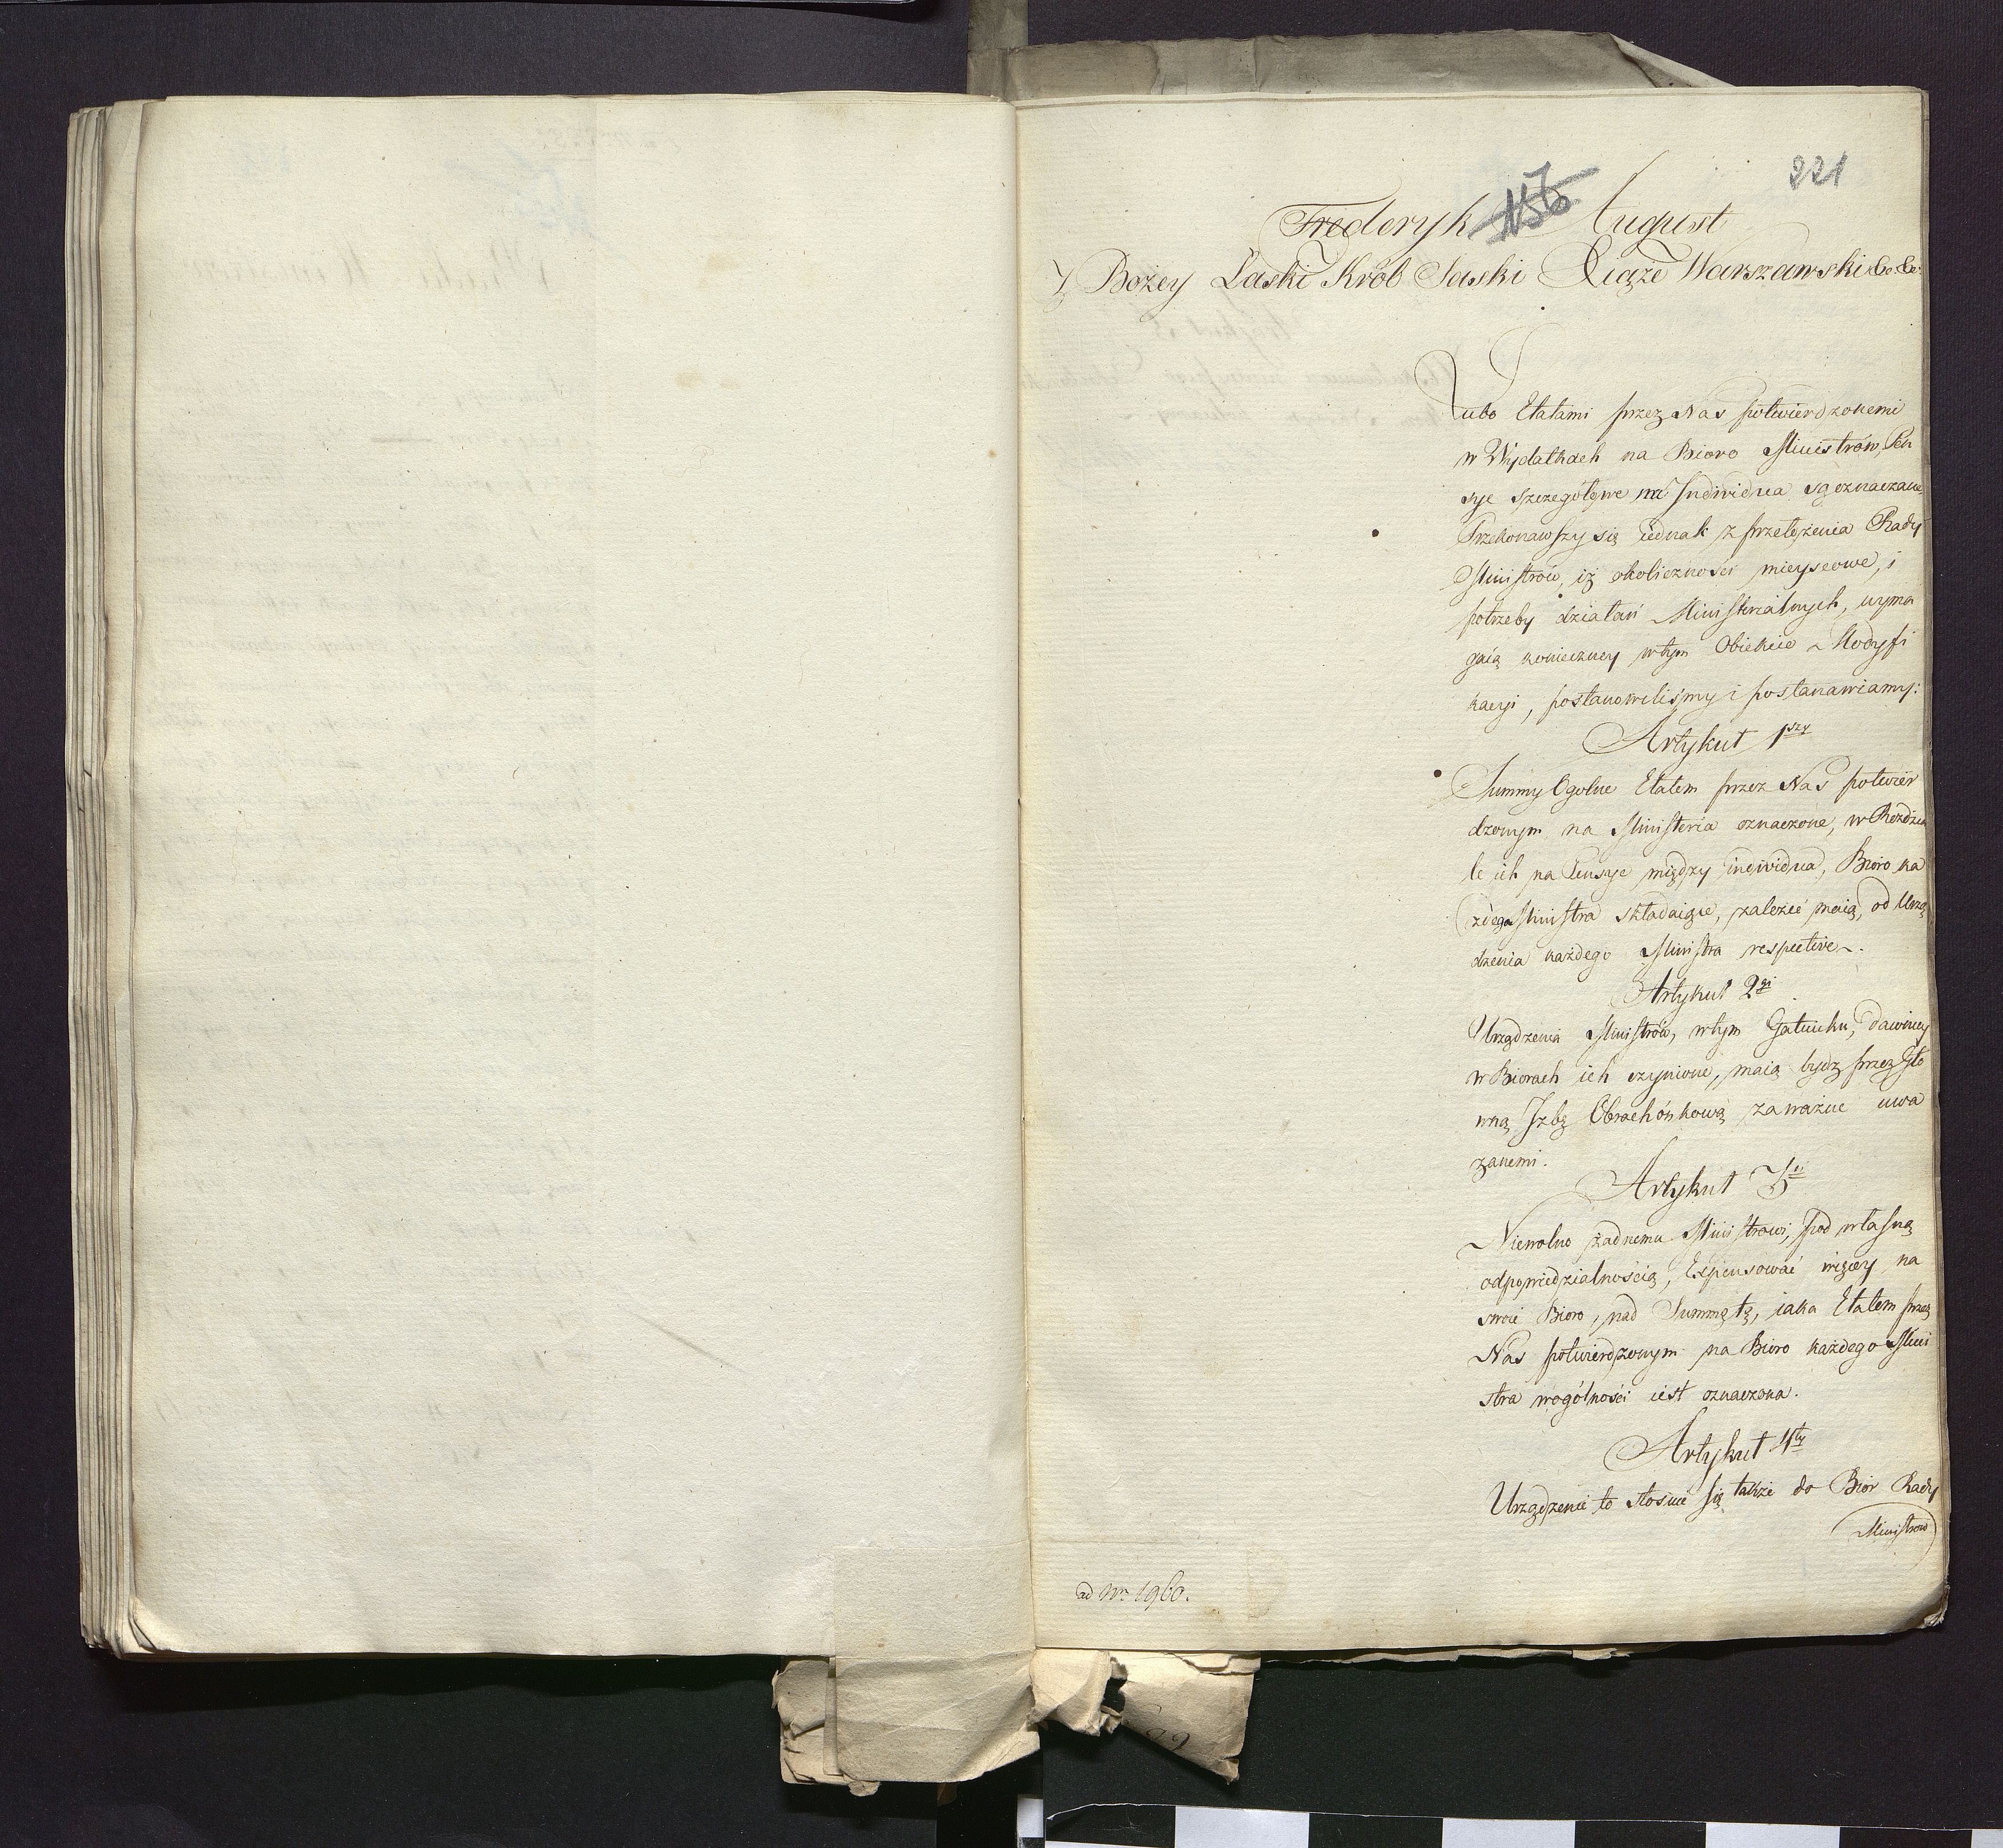 221
Fréderyk August
Z Bożey Łaski Król Saski Xiąże Warszawski &c &c
Lubo Etatami przez Nas potwierdzonemi
w Wydatkach na Bioro Ministrów, Pen
sye szczególowe na Indiwidua są oznaczane,
Przekonawszy się iednak z przełożenia Rady
Ministrów, iż okoliczności mieyscowe, i
potrzeby działań Ministerialnych, wyma
gaią konieczney w tym Obiekcie Modyfi
kacyi, postanowiliśmy i postanawiamy:
Artykuł 1szy
Summy Ogolne Etatem przez Nas potwier
dzonym na Ministeria oznaczone, w Rozdzia
le ich na Pensye między indiwidua, Bioro ka
żdego Ministra składaiące, zależeć maią, od Urzą
dzenia każdego Ministra respective.
Artykuł 2gi
Urządzenia Ministrów, w tym Gatunku, dawniey
w Biorach ich czynione, maią bydz przez Głó
wną Izbę Obrachónkową za ważne uwa
żanemi.
Artykuł 3ci
Niewolno żadnemu Ministrowi, pod własną
odpowiedzialnością, Expensować więcey na
swoie Bioro, nad Summę tę, iaka Etatem przez
Nas potwierdzonym na Bioro każdego Mini
stra wogólności iest oznaczona.
Artykuł 4ty
Urządzenie to stosuie się także do Biór Rady
Ministrów
ad Nro 1960.